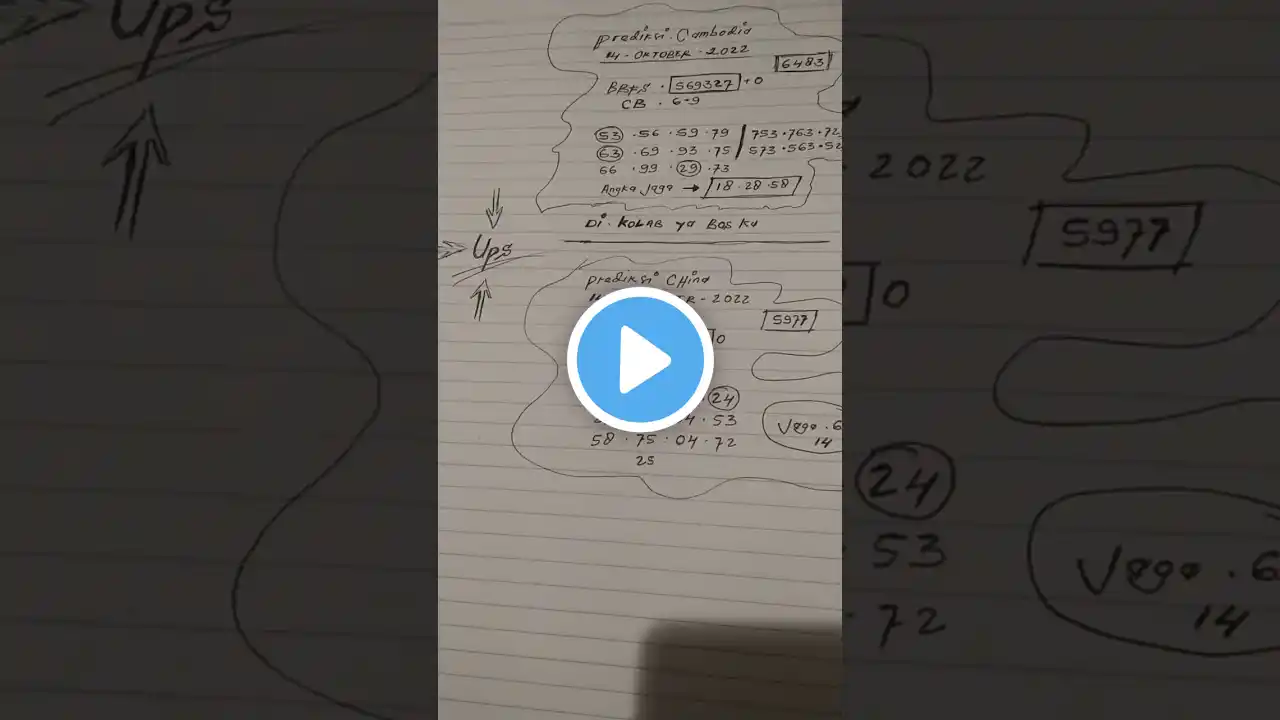 Ups
Prediksi. Cambodia
14 - OKTOBER - 2022
6483
BBFS . 569327 + 0
CB . 6-9
53 . 56 . 59 . 79 / 753 . 763 . 72
63 . 69 . 93 . 75 / 573 . 563 . 52
66 . 99 . 29 . 73
Angka Jaga → 18 . 28 . 58
Di. KOLAB ya Bos ku
Ups
Prediksi China
- 2022
5977
0
24
53
58 . 75 . 04 . 72
25
Jaga . 6
14
2022
5977
0
24
53
72
Jaga . 6
14